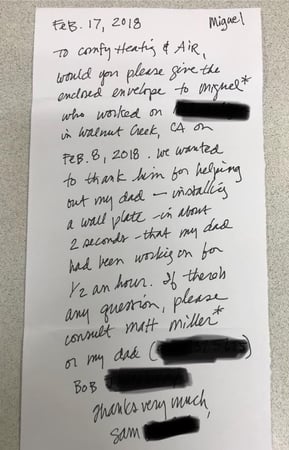 Feb. 17, 2018 Miguel
To Comfy Heating & Air,
would you please give the
enclosed envelope to Miguel*
who worked on
in Walnut Creek, CA on
Feb. 8, 2018. We wanted
to thank him for helping
out my dad – installing
a wall plate – in about
2 seconds – that my dad
had been working on for
1/2 an hour. If there's
any question, please
consult Matt Miller*
or my dad (
Bob
Thanks very much,
Sam